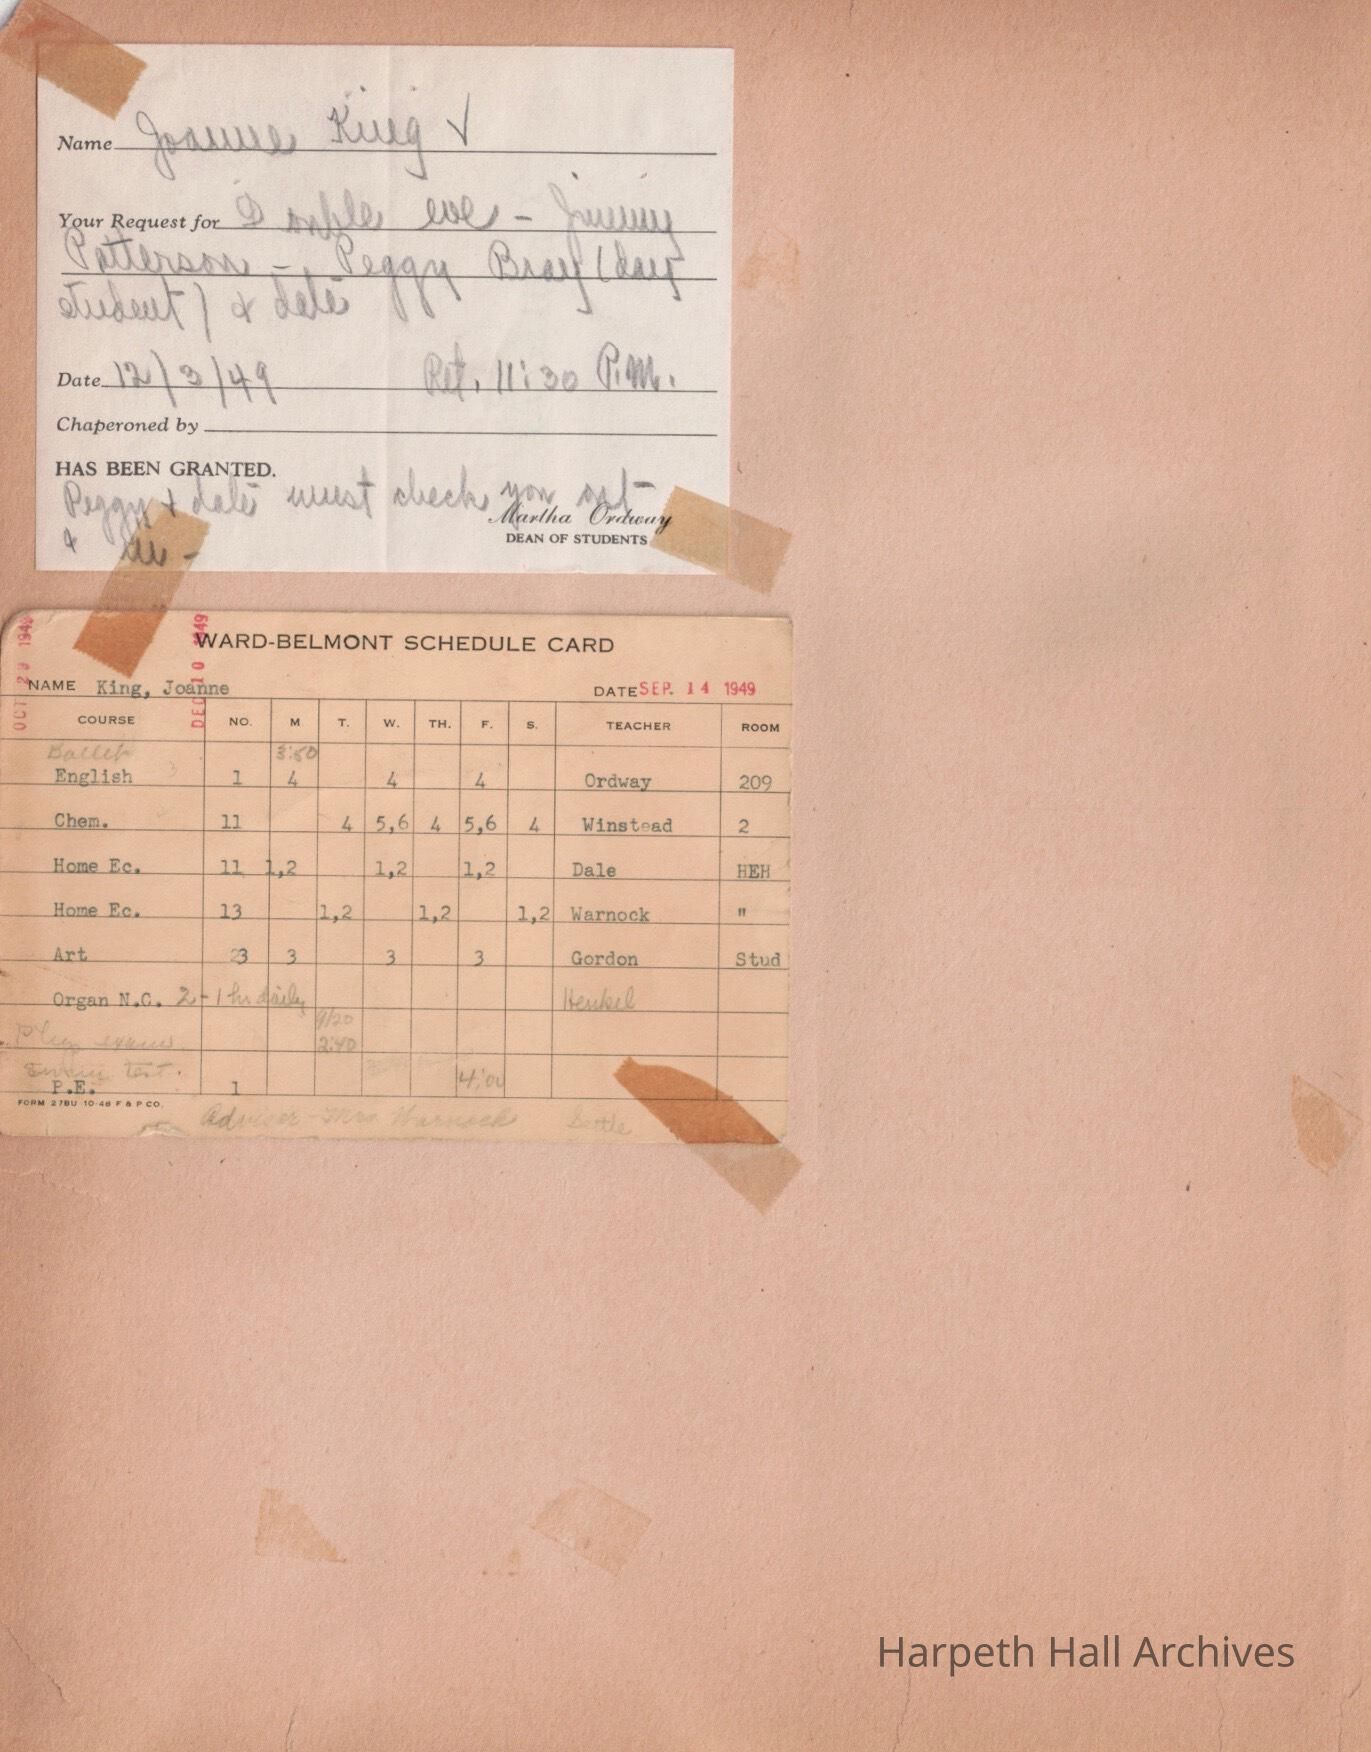 Name Joanne King ✓
Your Request for Double eve - Jimmy
Patterson - Peggy Bray (day
student) & date
Date 12/3/49 Ret. 11:30 P.M.
Chaperoned by
HAS BEEN GRANTED.
Peggy & date must check you out
& in -
Martha Ordway
DEAN OF STUDENTS
OCT 29 1949
DEC 10 1949
WARD-BELMONT SCHEDULE CARD
NAME King, Joanne DATE SEP. 14 1949
COURSE NO. M T. W. TH. F. S. TEACHER ROOM
Ballet 3:50
English 1 4 4 4 Ordway 209
Chem. 11 4 5,6 4 5,6 4 Winstead 2
Home Ec. 11 1,2 1,2 1,2 Dale HEH
Home Ec. 13 1,2 1,2 1,2 Warnock "
Art 23 3 3 3 Gordon Stud
Organ N.C. 2 - 1 hr daily Henkel
9/20
Phys exam. 2:40
Swim test. 4:00
P.E. 1
FORM 27BU 10-48 F & P CO.
Adviser - Mrs Warnock
Harpeth Hall Archives